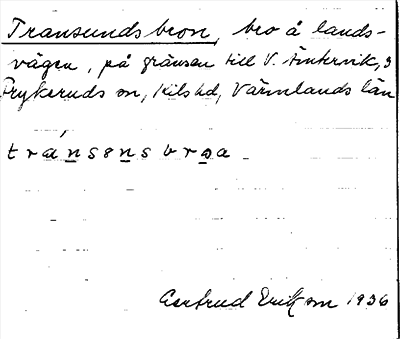 Transundsbron, bro å lands-
vägen, på gränsen till V. Ämtervik, 3
Frykeruds sn, Kils hd, Värmlands län
transənsbroa
Gertrud Erikson 1936